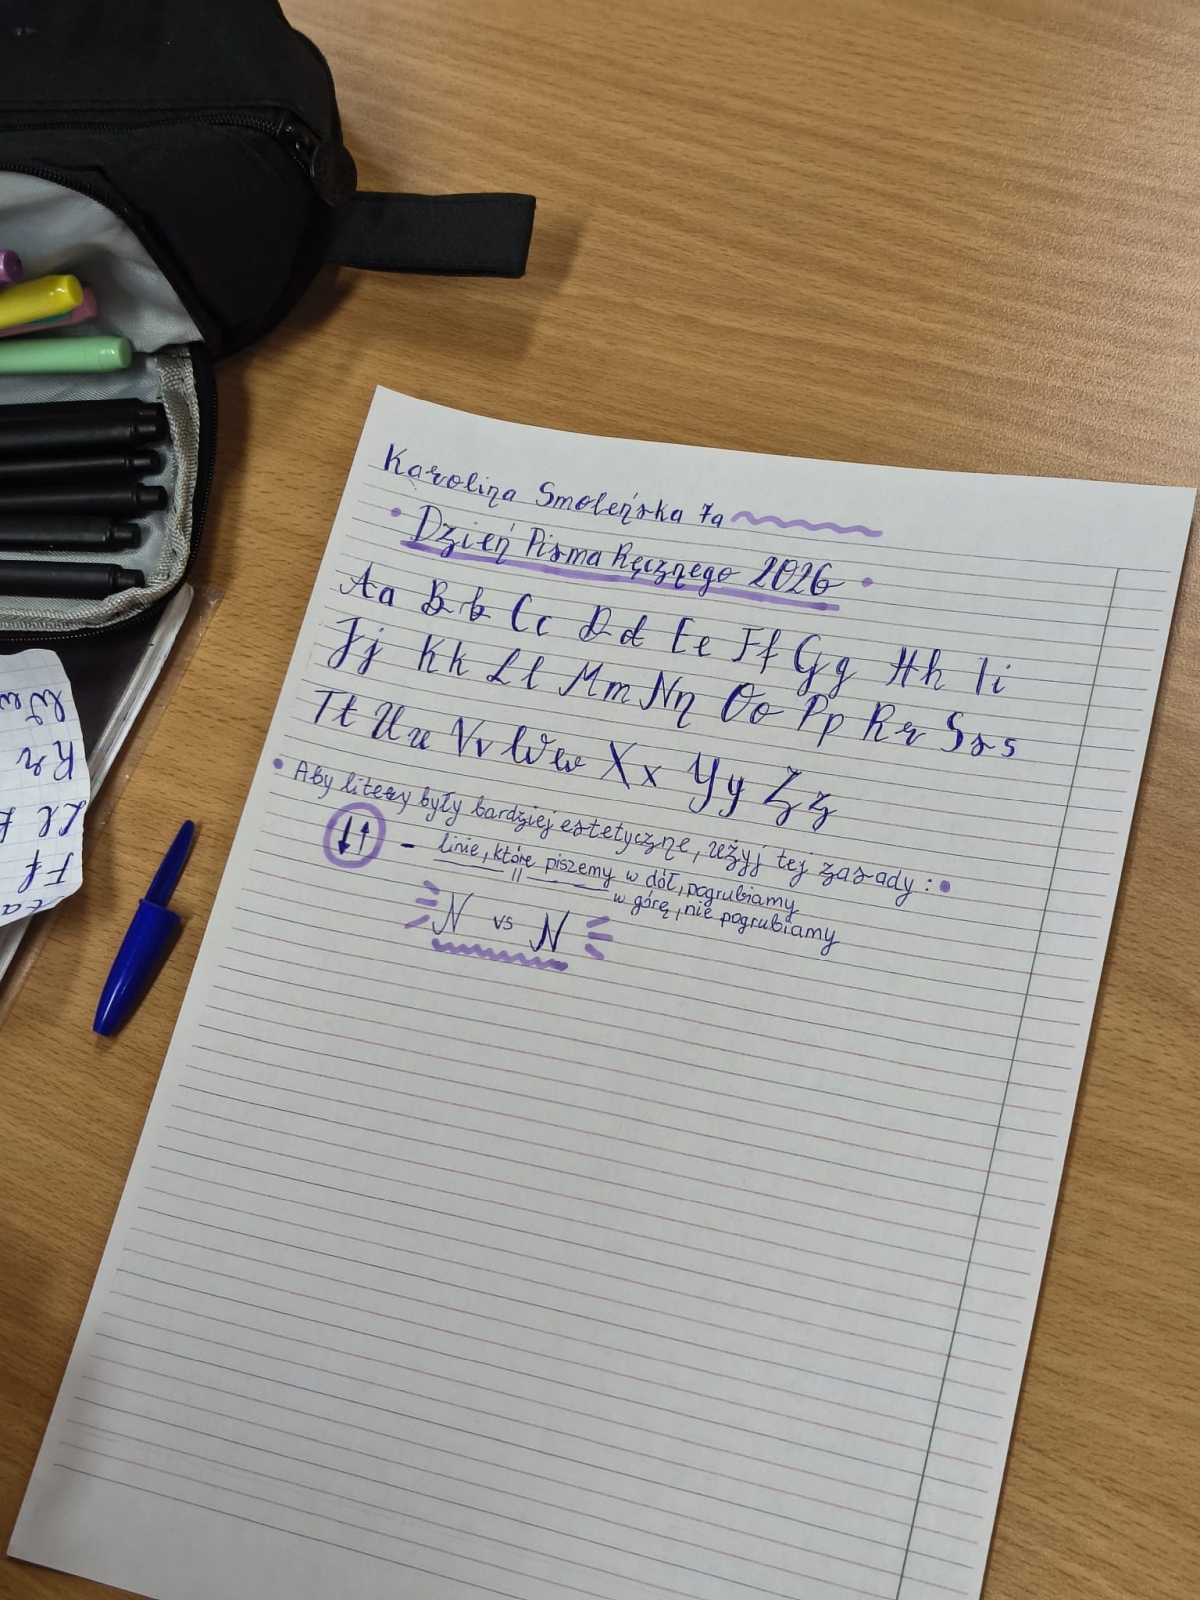 Karolina Smoleńska 7a
Dzień Pisma Ręcznego 2026
Aa Bb Cc Dd Ee Ff Gg Hh Ii
Jj Kk Ll Mm Nn Oo Pp Rr Ss s
Tt Uu Vv Ww Xx Yy Zz
Aby litery były bardziej estetyczne, użyj tej zasady:
↓↑ - linie, które piszemy w dół, pogrubiamy
—— || —— w górę, nie pogrubiamy
N vs N
Ww
Rr
Ll
Ff